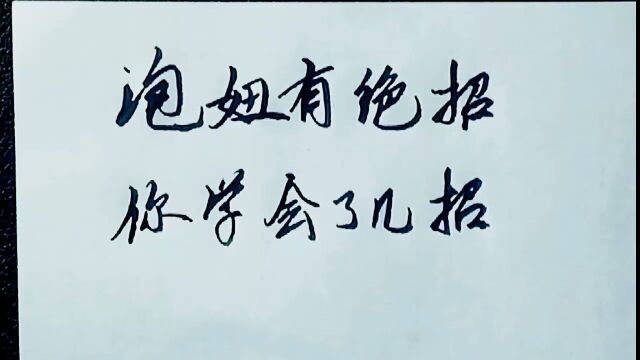 泡妞有绝招
你学会了几招